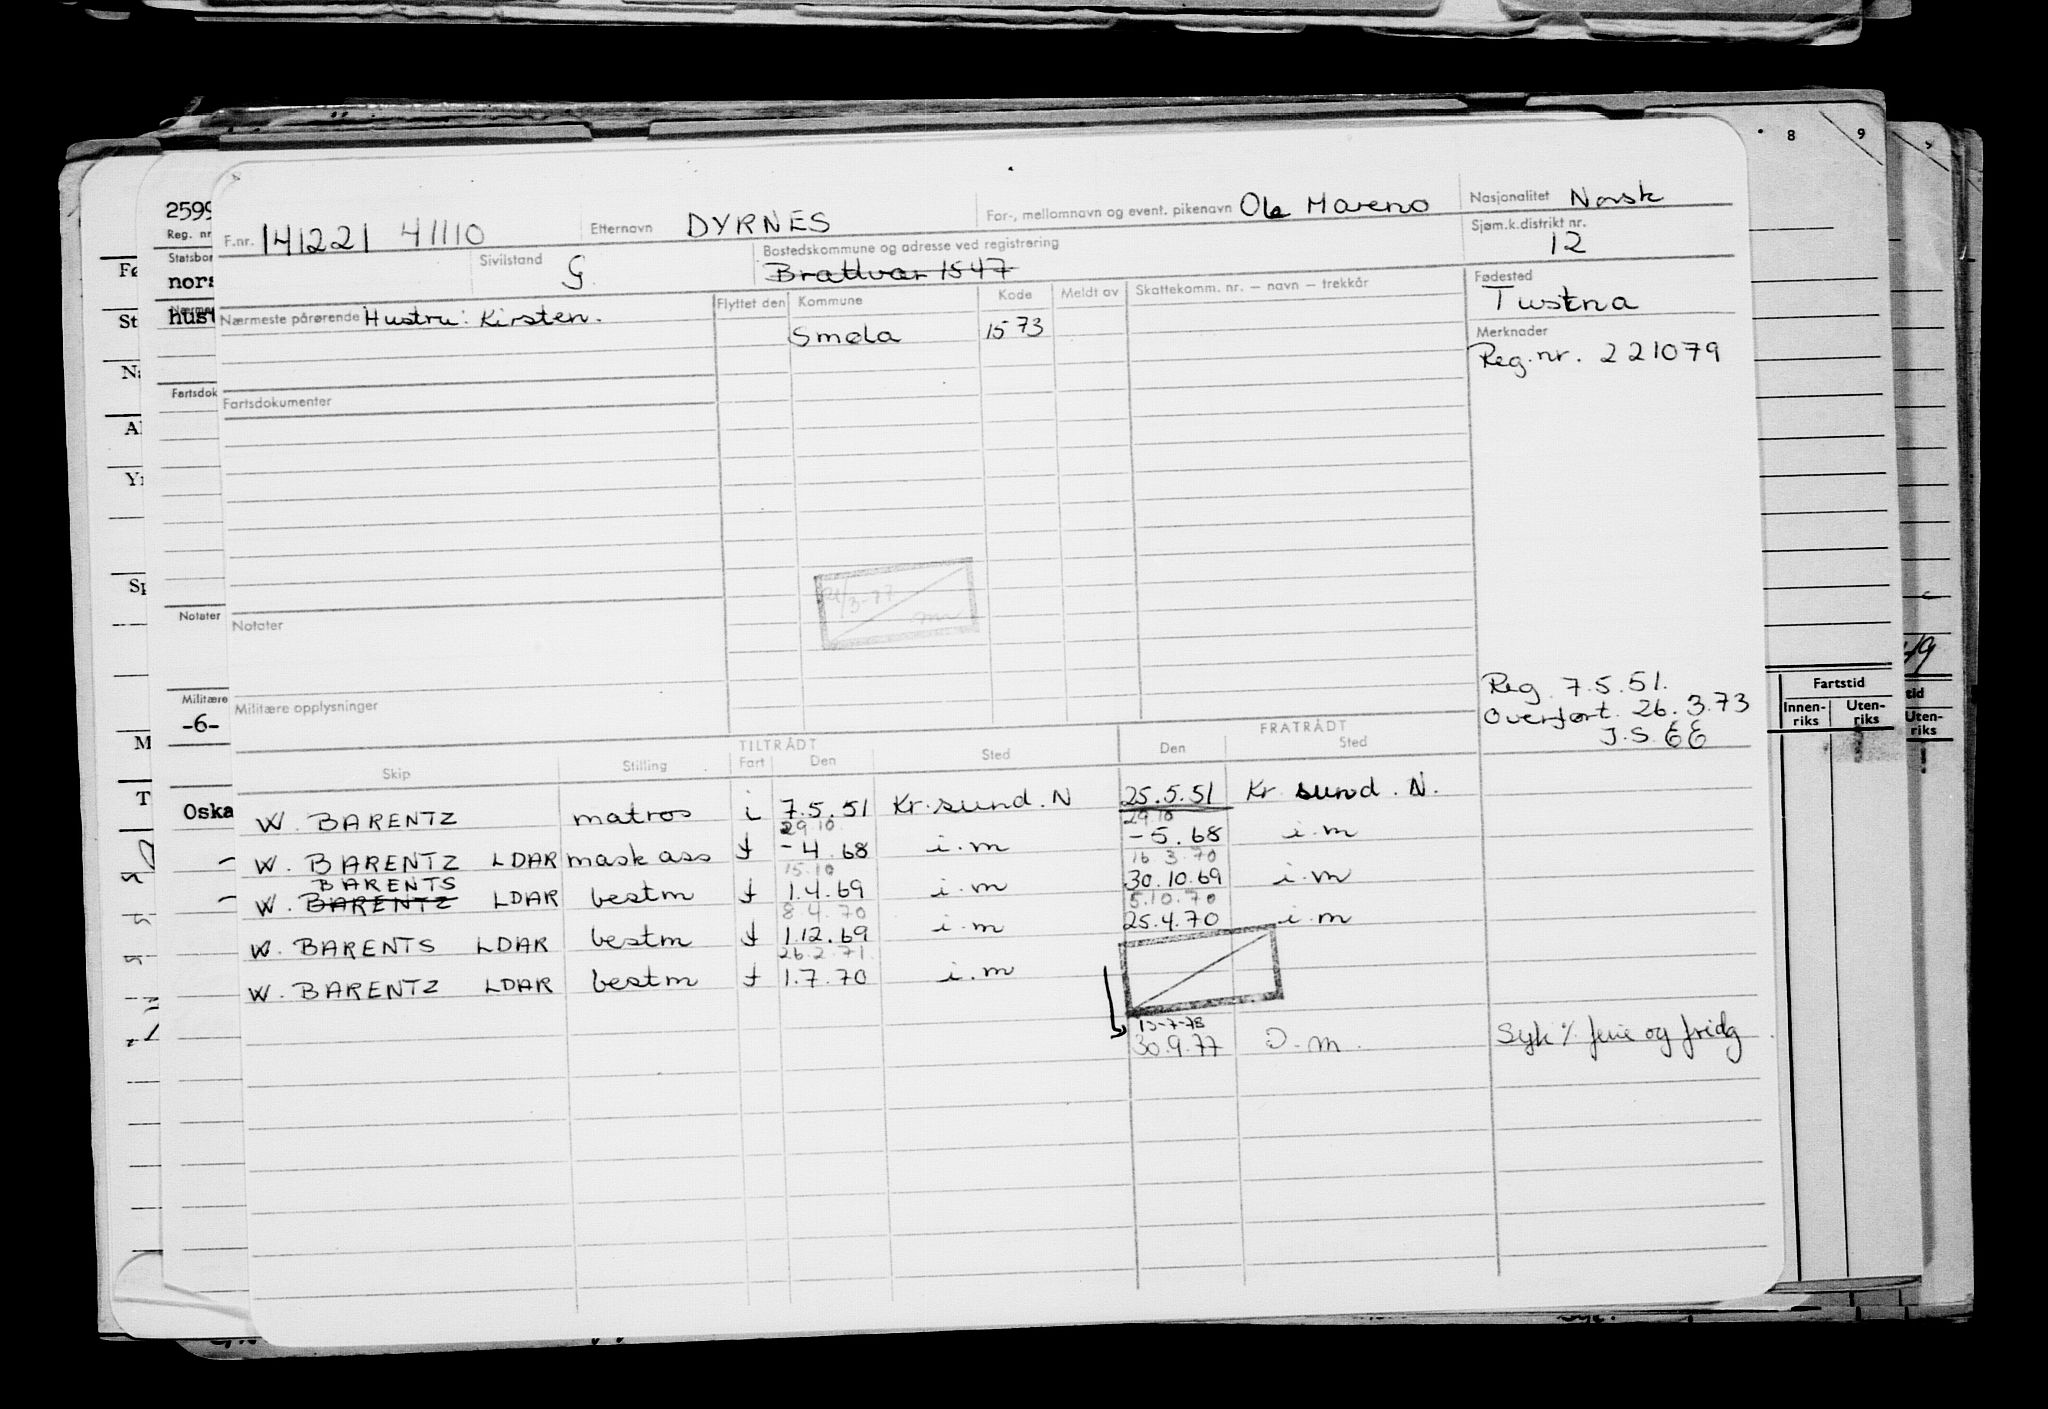 8 9
2599
Reg. nr
Statsbor
nors
Nærmes
hust
Fartsdok
Notater
Militære
-6-
Oska
F.nr. 141221 41110 Etternavn DYRNES For-, mellomnavn og event. pikenavn Ole Mareno Nasjonalitet Norsk
Sivilstand G. Bostedskommune og adresse ved registrering Brattvær 1547 Sjøm.k.distrikt nr. 12
Nærmeste pårørende Hustru: Kirsten. Flyttet den Kommune Kode Meldt av Skattekomm. nr. — navn — trekkår Fødested
Tustna
Smøla 1573
Merknader
Reg.nr. 221079
Fartsdokumenter
21/3-77
Notater
Militære opplysninger
Reg. 7.5.51.
Overført. 26.3.73
J.S. EE
Fartstid
Innen-riks Uten-riks
tid
Uten-riks
TILTRÅDT FRATRÅDT
Skip Stilling Fart Den Sted Den Sted
W. BARENTZ matros i 7.5.51 Kr.sund.N 25.5.51 Kr sund.N.
29.10. 29.10
W. BARENTZ LDAR mask ass f -4.68 i.m -5.68 i.m
BARENTS 15.10 16.3.70
W. BARENTZ LDAR bestm f 1.4.69 i.m 30.10.69 i.m
8.4.70 5.10.70
W. BARENTS LDAR bestm f 1.12.69 i.m 25.4.70 i.m
26.2.71.
W. BARENTZ LDAR bestm f 1.7.70 i.m
13-7-78
30.9.77 I.m. Syk % ferie og fridg.